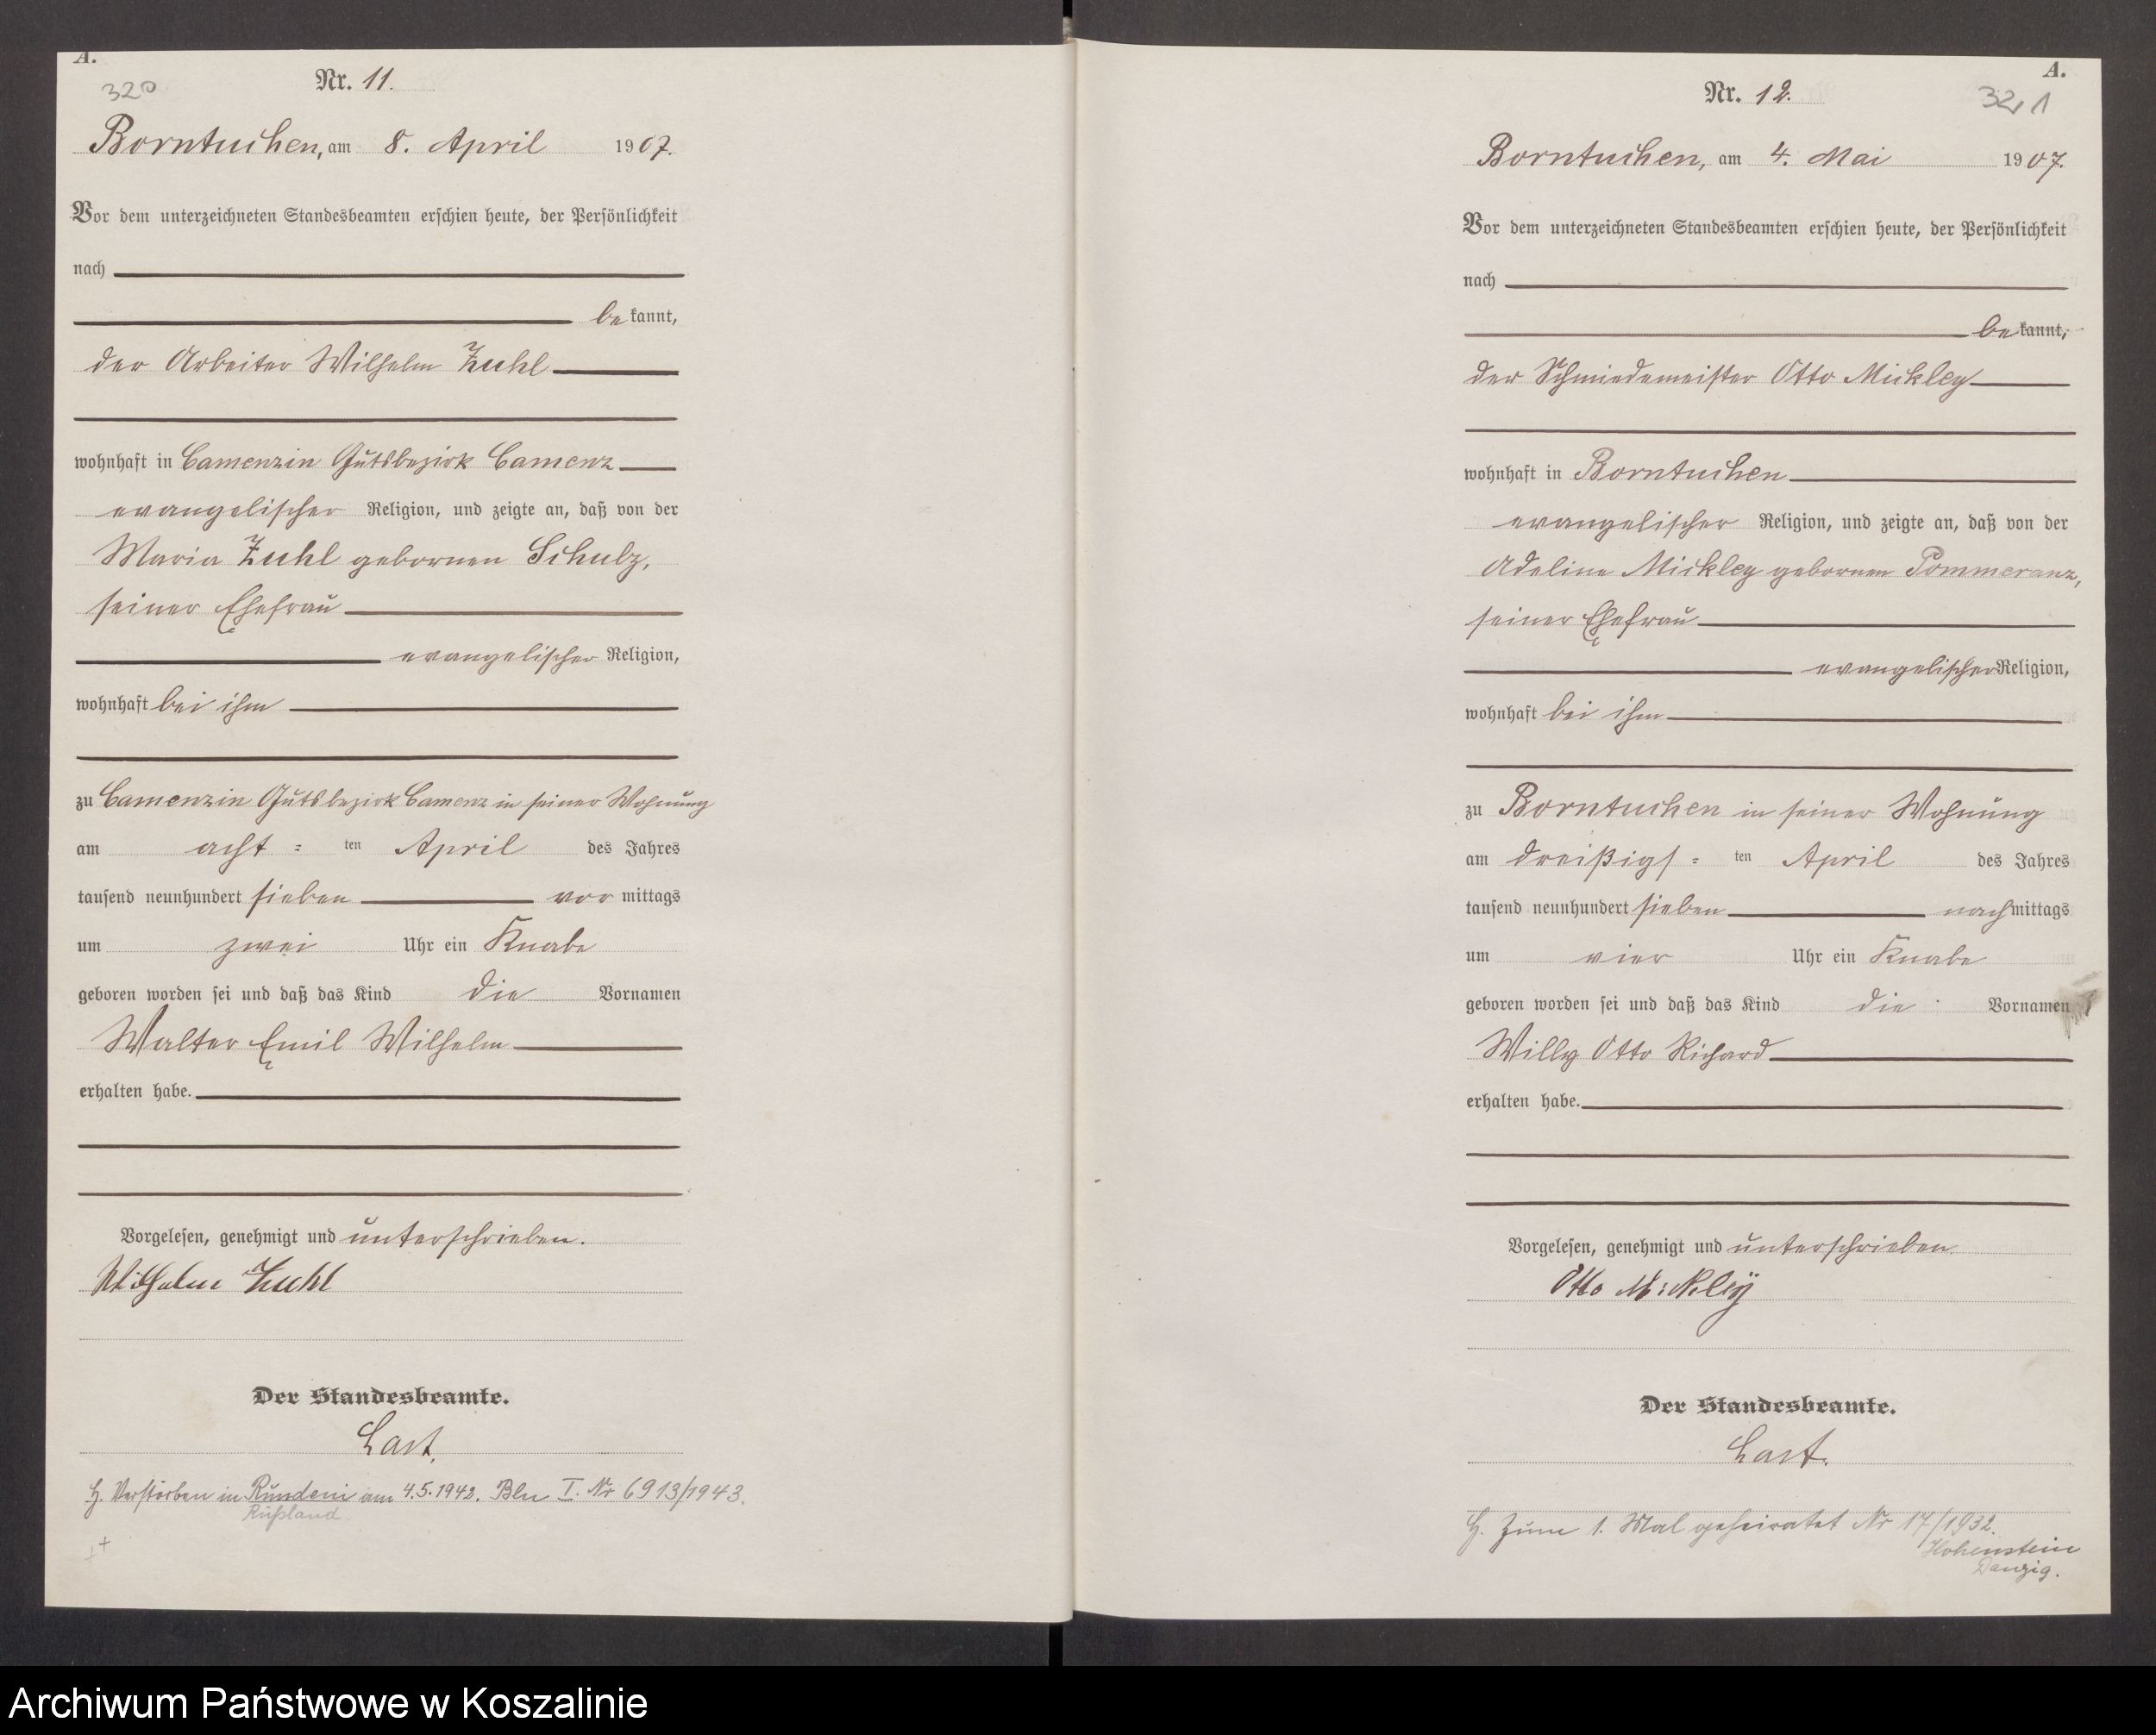 A.
320
Nr. 11.
Borntuchen, am 8. April 1907.
Vor dem unterzeichneten Standesbeamten erschien heute, der Persönlichkeit
nach
be kannt,
der Arbeiter Wilhelm Zuhl
wohnhaft in Camenzin Gutsbezirk Camenz
evangelischer Religion, und zeigte an, daß von der
Maria Zuhl gebornen Schulz,
seiner Ehefrau
evangelischer Religion,
wohnhaft bei ihm
zu Camenzin Gutsbezirk Camenz in seiner Wohnung
am acht = ten April des Jahres
tausend neunhundert sieben vor mittags
um zwei Uhr ein Knabe
geboren worden sei und daß das Kind die Vornamen
Walter Emil Wilhelm
erhalten habe.
Vorgelesen, genehmigt und unterschrieben.
Wilhelm Zuhl
Der Standesbeamte.
Last.
H. Verstorben in Rundeni am 4.5.1942. Bln I. Nr 6913/1943.
Rußland.
A.
321
Nr. 12.
Borntuchen, am 4. Mai 1907.
Vor dem unterzeichneten Standesbeamten erschien heute, der Persönlichkeit
nach
be kannt,
der Schmiedemeister Otto Mickley
wohnhaft in Borntuchen
evangelischer Religion, und zeigte an, daß von der
Adeline Mickley gebornen Pommeranz,
seiner Ehefrau
evangelischer Religion,
wohnhaft bei ihm
zu Borntuchen in seiner Wohnung
am dreißigs = ten April des Jahres
tausend neunhundert sieben nach mittags
um vier Uhr ein Knabe
geboren worden sei und daß das Kind die Vornamen
Willy Otto Richard
erhalten habe.
Vorgelesen, genehmigt und unterschrieben
Otto Mickley
Der Standesbeamte.
Last.
H. Zum 1. Mal geheiratet Nr 17/1932.
Hohenstein
Danzig.
Archiwum Państwowe w Koszalinie